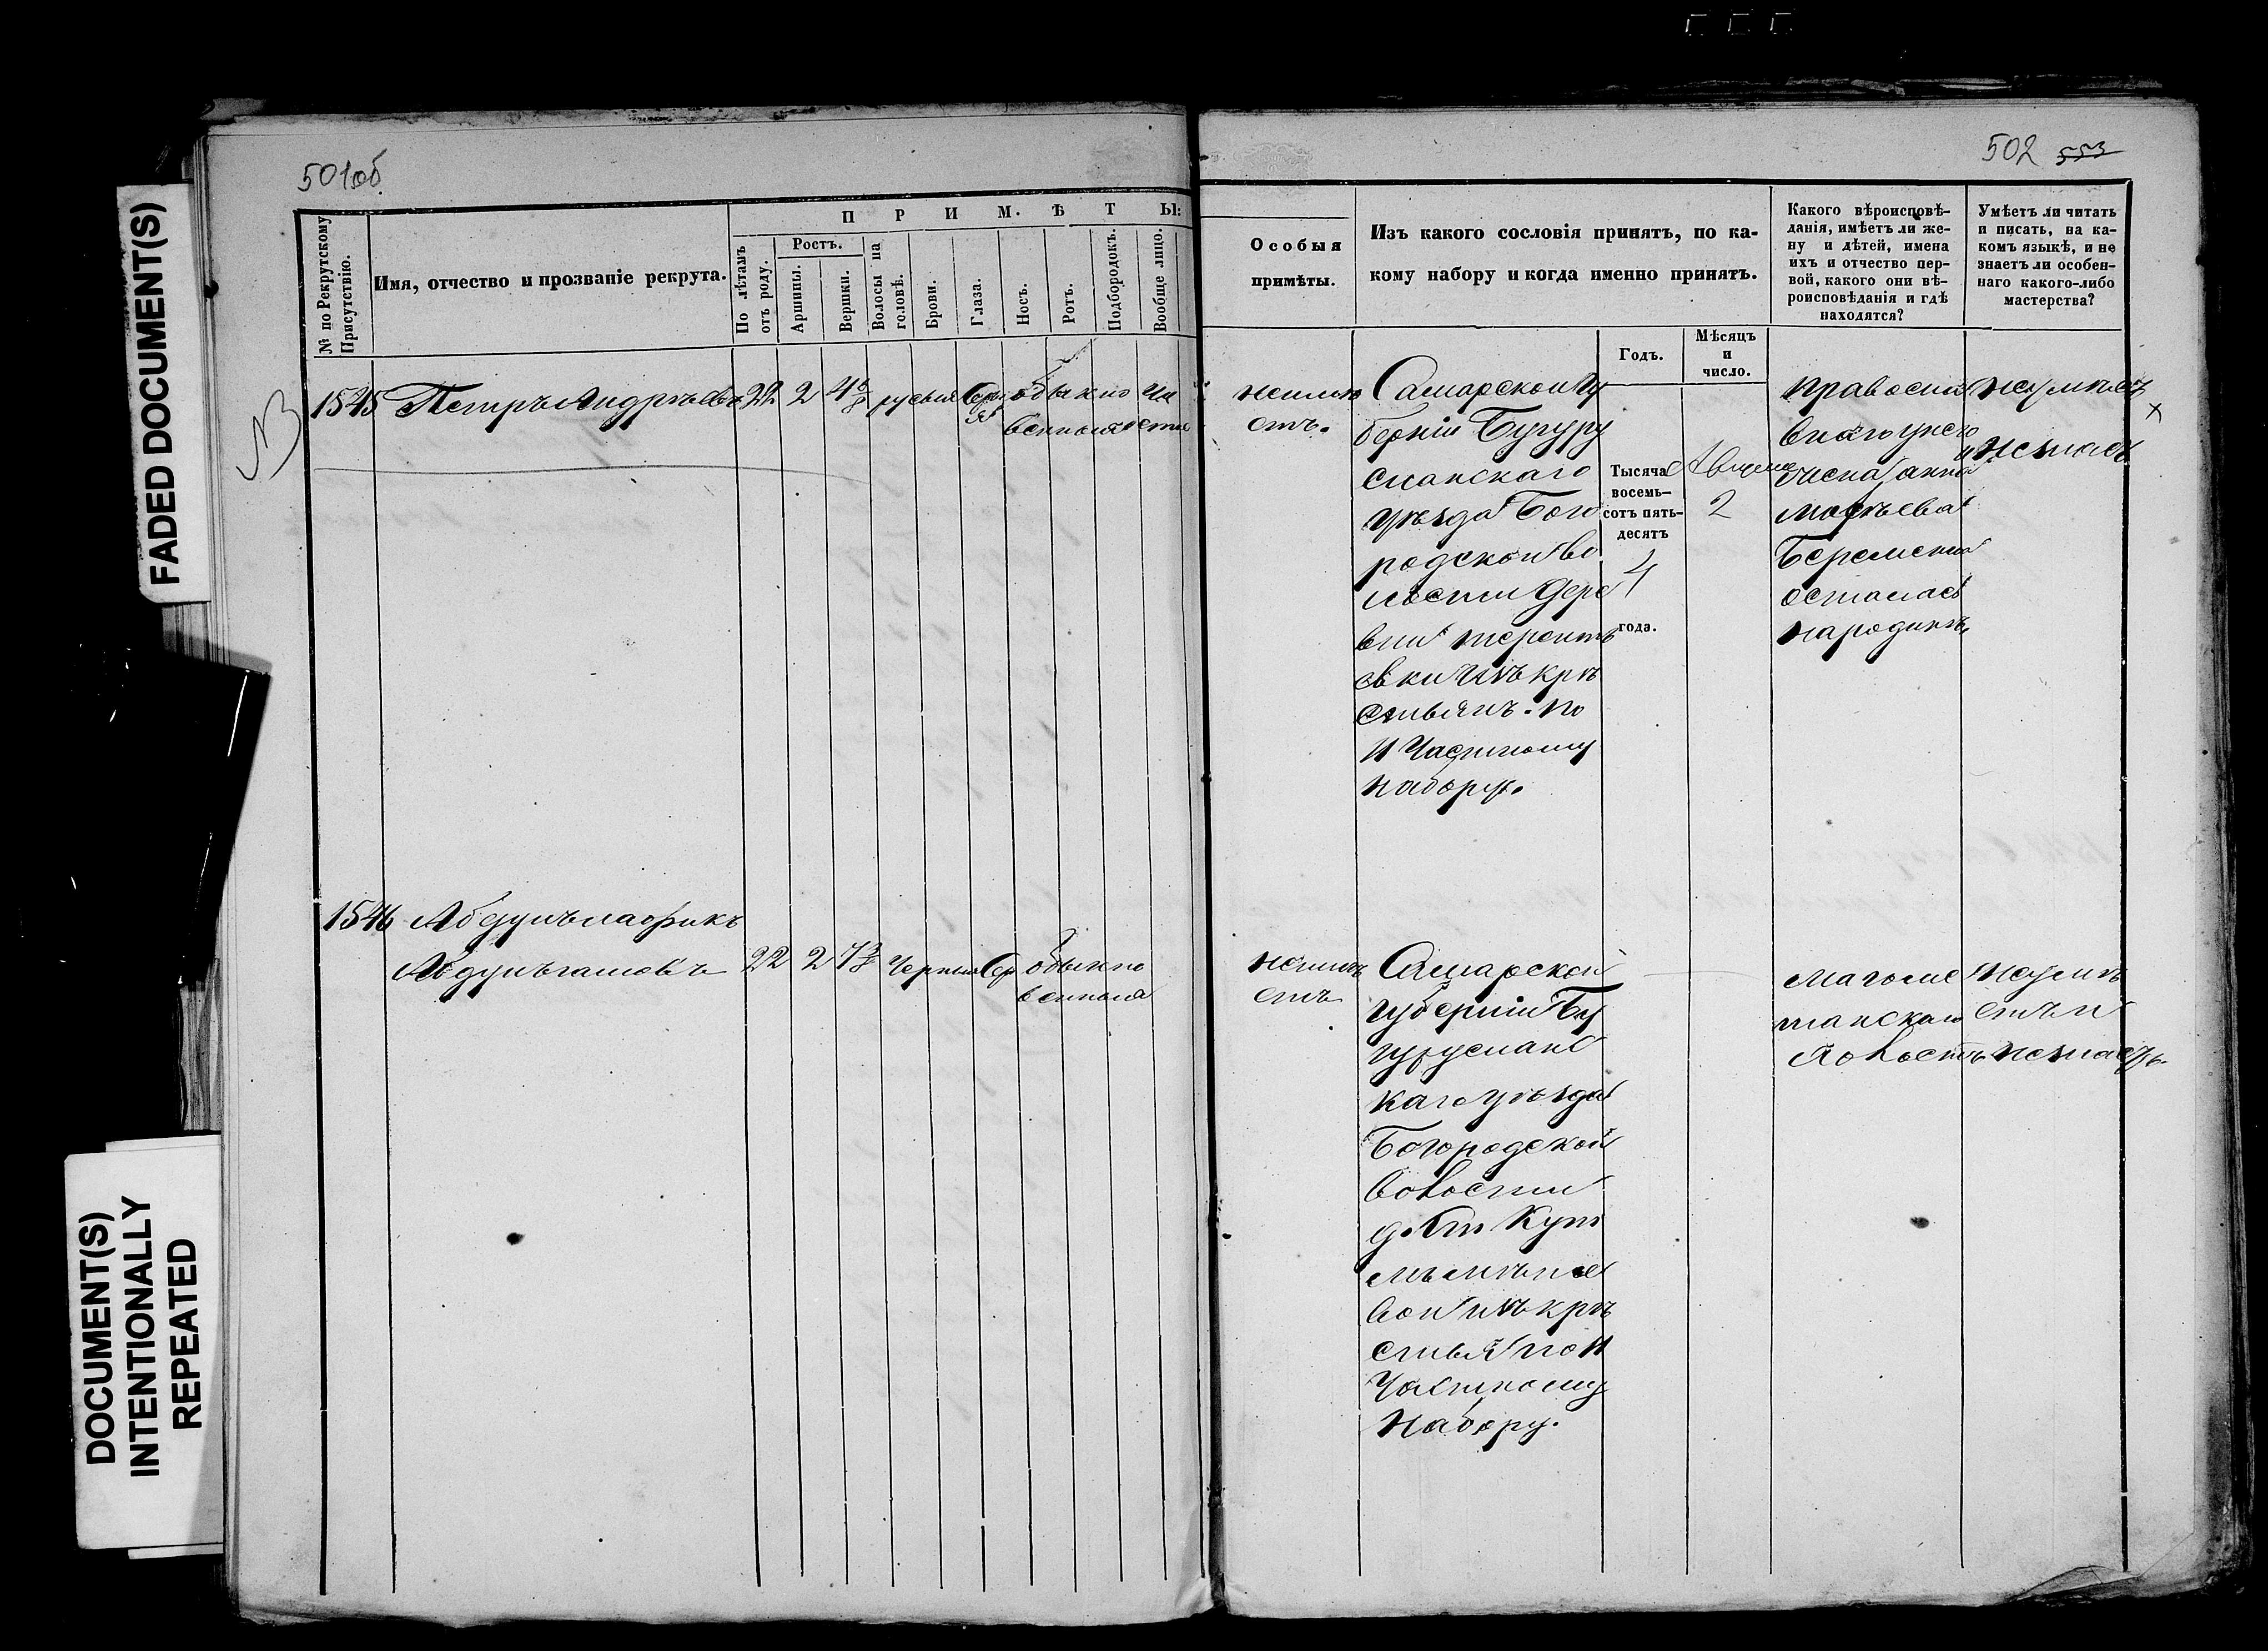 FADED DOCUMENT(S)
DOCUMENT(S)
INTENTIONALLY
REPEATED
501об
502 553
№ по Рекрутскому
Присутствію.
Имя, отчество и прозваніе рекрута.
ПРИМѢТЫ:
По лѣтамъ
отъ роду.
Ростъ.
Аршины.
Вершки.
Волосы на
головѣ.
Брови.
Глаза.
Носъ.
Ротъ.
Подбородокъ.
Вообще лицо.
Особыя
примѣты.
Изъ какого сословія принятъ, по ка-
кому набору и когда именно принятъ.
Годъ.
Мѣсяцъ
и
число.
Какого вѣроисповѣ-
данія, имѣетъ ли же-
ну и дѣтей, имена
ихъ и отчество пер-
вой, какого они вѣ-
роисповѣданія и гдѣ
находятся?
Умѣетъ ли читать
и писать, на ка-
комъ языкѣ, и не
знаетъ ли особен-
наго какого-либо
мастерства?
1545 Петръ Андрѣевъ 22 2 4 6/8 русыя Серы обыкно чи
я венныя стое
неимѣ
етъ.
Самарской гу
берніи Бугуру
сланскаго
уѣзда Бого
родской во
лости дере
вни
евки изъ крѣ
стьянъ. по
11 Частному
набору.
Тысяча
восемь-
сотъ пять-
десятъ
4
года.
2
православ
внаго у него
жена анна
Беремена
осталась
народинѣ,
неумѣетъ
и незнаетъ
х
1546 Абдулълафикъ
22 2 7 3/8 Черныя Сер обыкно
венныя
неимѣ
етъ
Самарской
губерніи Бу
гурусланс
каго уѣзда
Богородской
Волости
вой изъ крѣ
стьян по 11
Частному
Набору.
Магоме
танскаго
холостъ
неумѣ
етъ и
незнаетъ.